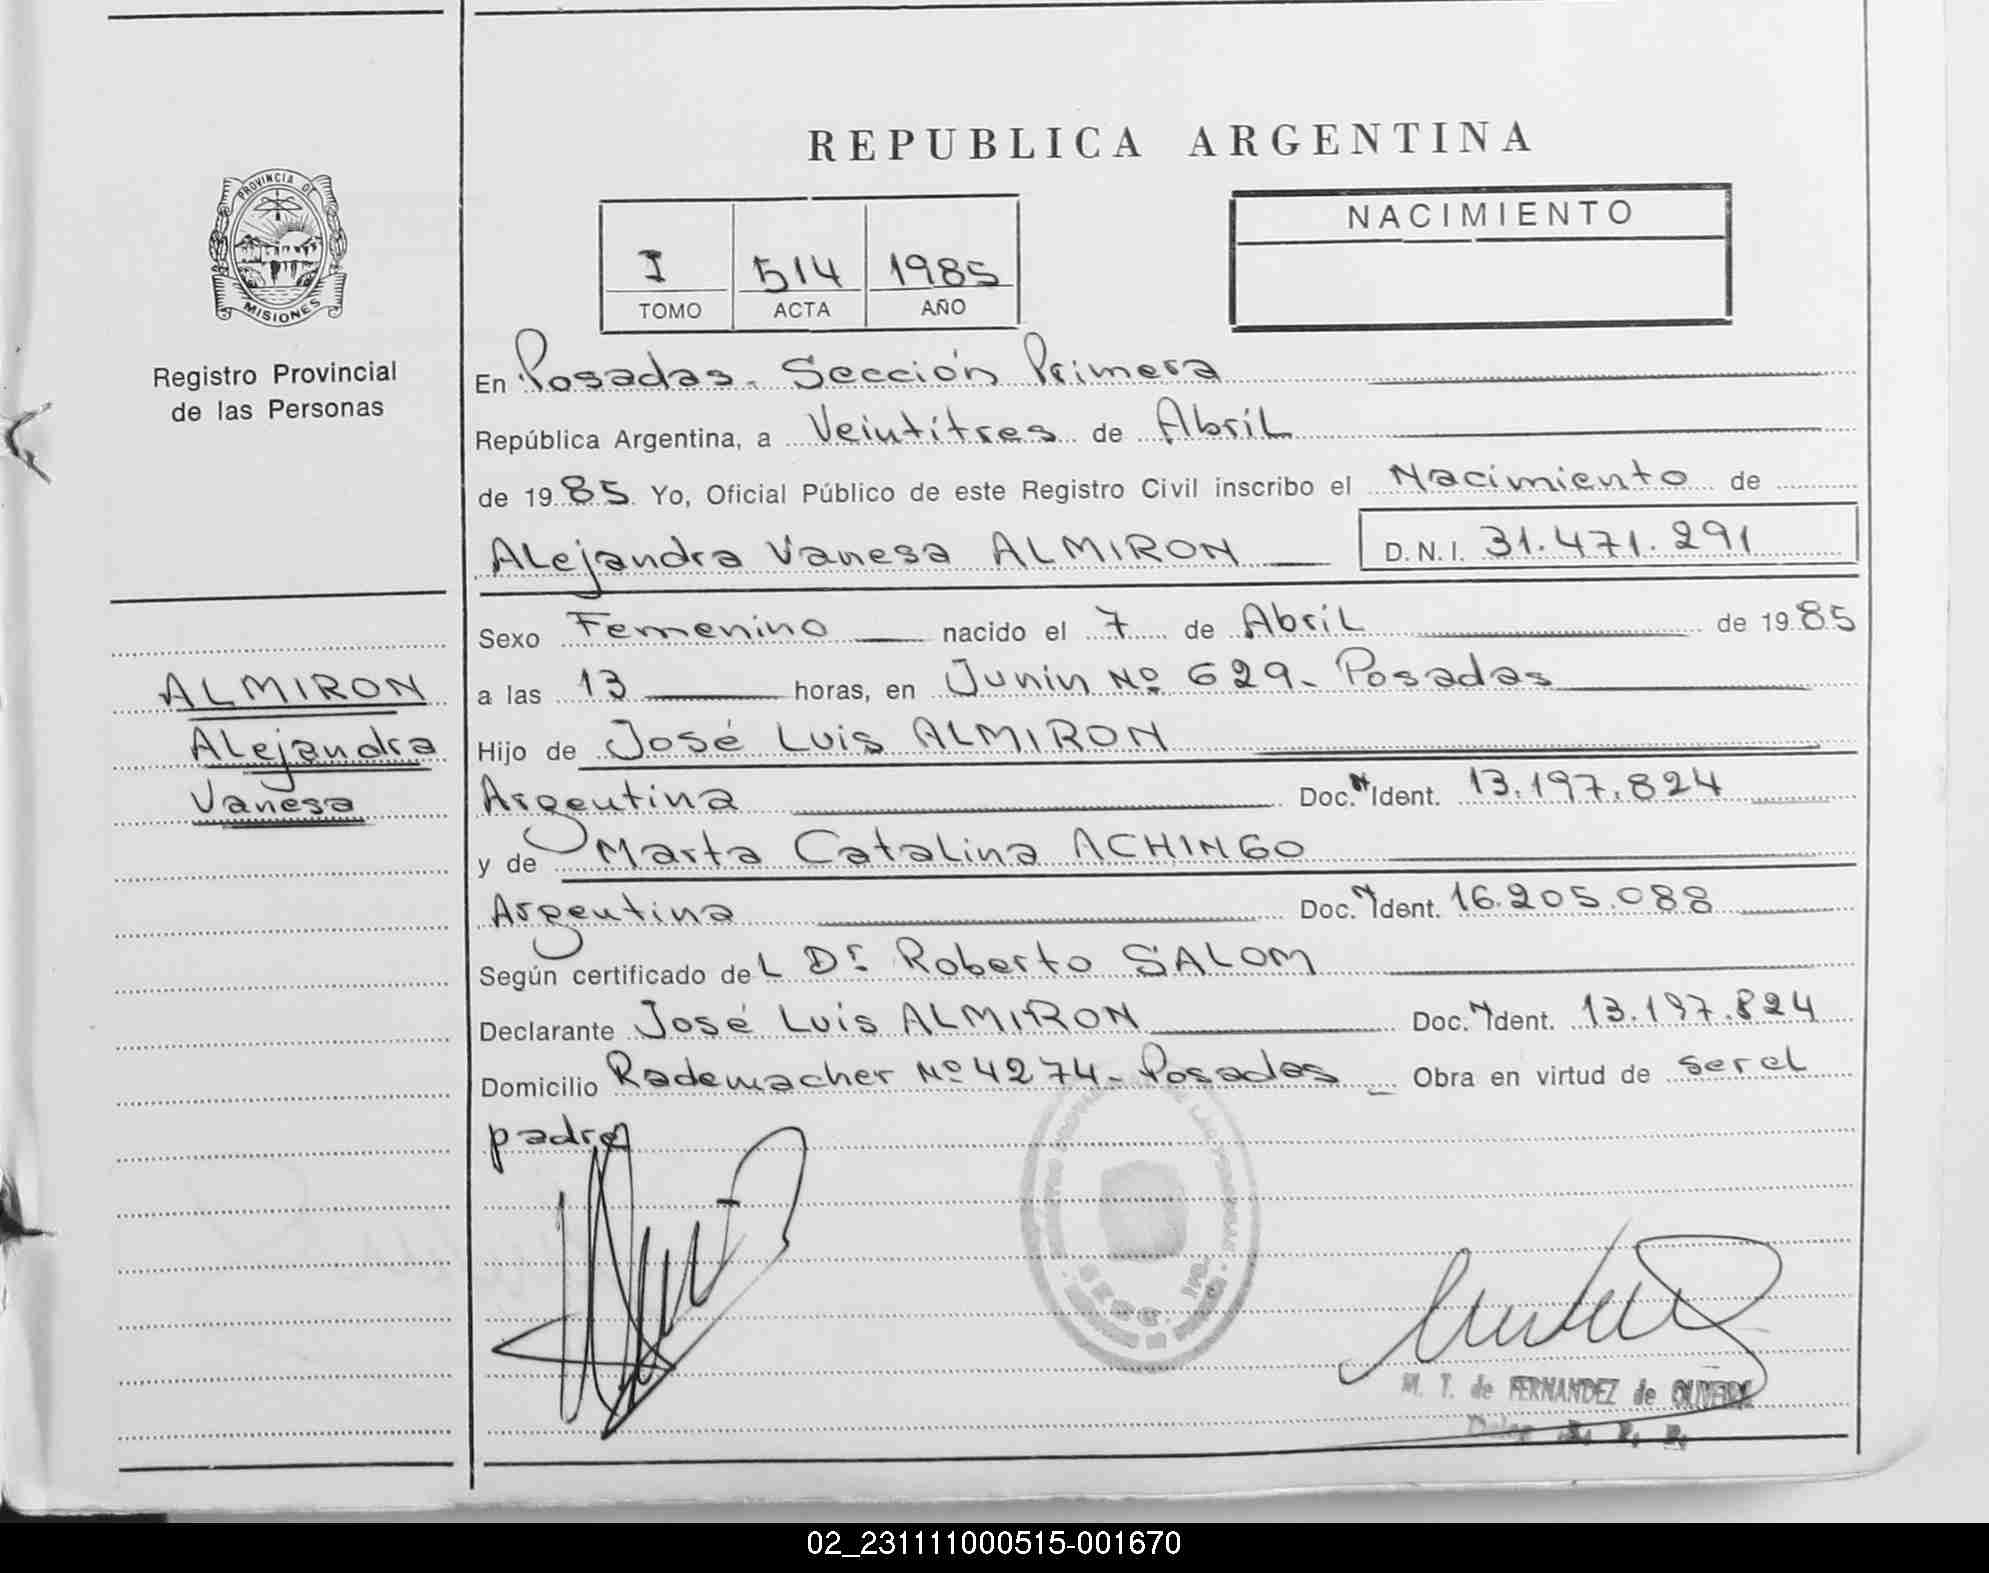 REPUBLICA ARGENTINA
PROVINCIA DE MISIONES
Registro Provincial
de las Personas
I 514 1985
TOMO ACTA AÑO
NACIMIENTO
En Posadas. Sección Primera
República Argentina, a Veintitres de Abril
de 1985. Yo, Oficial Público de este Registro Civil inscribo el Nacimiento de
Alejandra Vanesa ALMIRON D.N.I. 31.471.291
Sexo Femenino nacido el 7 de Abril de 1985
ALMIRON
Alejandra
Vanesa
a las 13 horas, en Junin Nº 629- Posadas
Hijo de José Luis ALMIRON
Argentina Doc. N Ident. 13.197.824
y de Marta Catalina ACHINGO
Argentina Doc. N Ident. 16.205.088
Según certificado del Dr. Roberto SALOM
Declarante José Luis ALMIRON Doc. N Ident. 13.197.824
Domicilio Rademacher Nº 4274- Posadas Obra en virtud de ser el
padre
M. T. de FERNANDEZ de OLIVEIRA
02_231111000515-001670